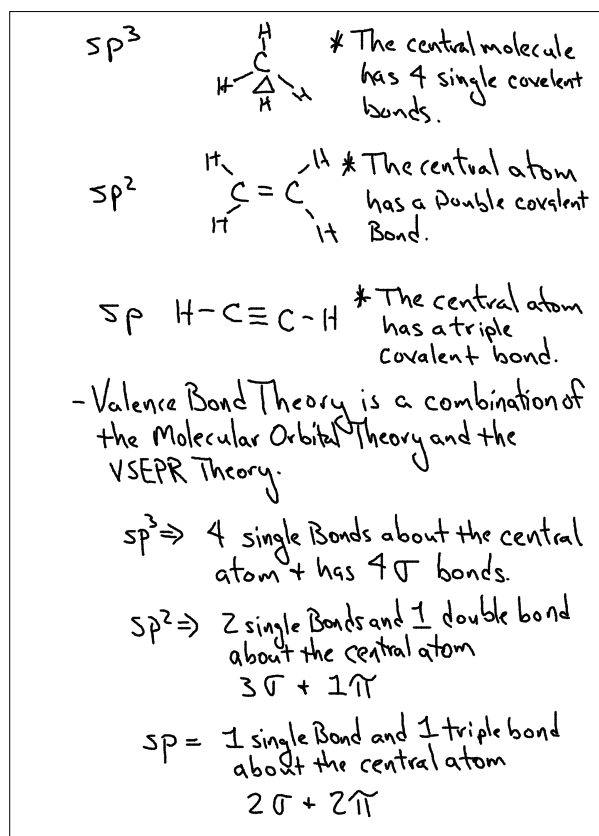 sp³
H
C
H
H
H
* The central molecule
has 4 single covelent
bonds.
sp²
H
H
C = C
H
H
* The central atom
has a Double covalent
Bond.
sp H-C≡C-H
* The central atom
has a triple
covalent bond.
- Valence Bond Theory is a combination of
the Molecular Orbital Theory and the
VSEPR Theory.
sp³ ⇒ 4 single Bonds about the central
atom + has 4σ bonds.
sp² ⇒ 2 single Bonds and 1 double bond
about the central atom
3σ + 1π
sp = 1 single Bond and 1 triple bond
about the central atom
2σ + 2π